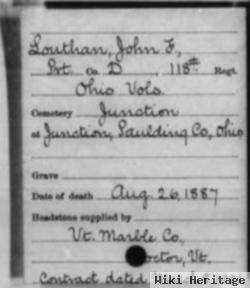 Louthan, John F.,
Pvt. Co. D, 118th Regt.
Ohio Vols.
Cemetery Junction
at Junction, Paulding Co., Ohio
Grave
Date of death Aug. 26, 1887
Headstone supplied by
Vt. Marble Co.,
octor, Vt.
Contract dated
Wiki Heritage